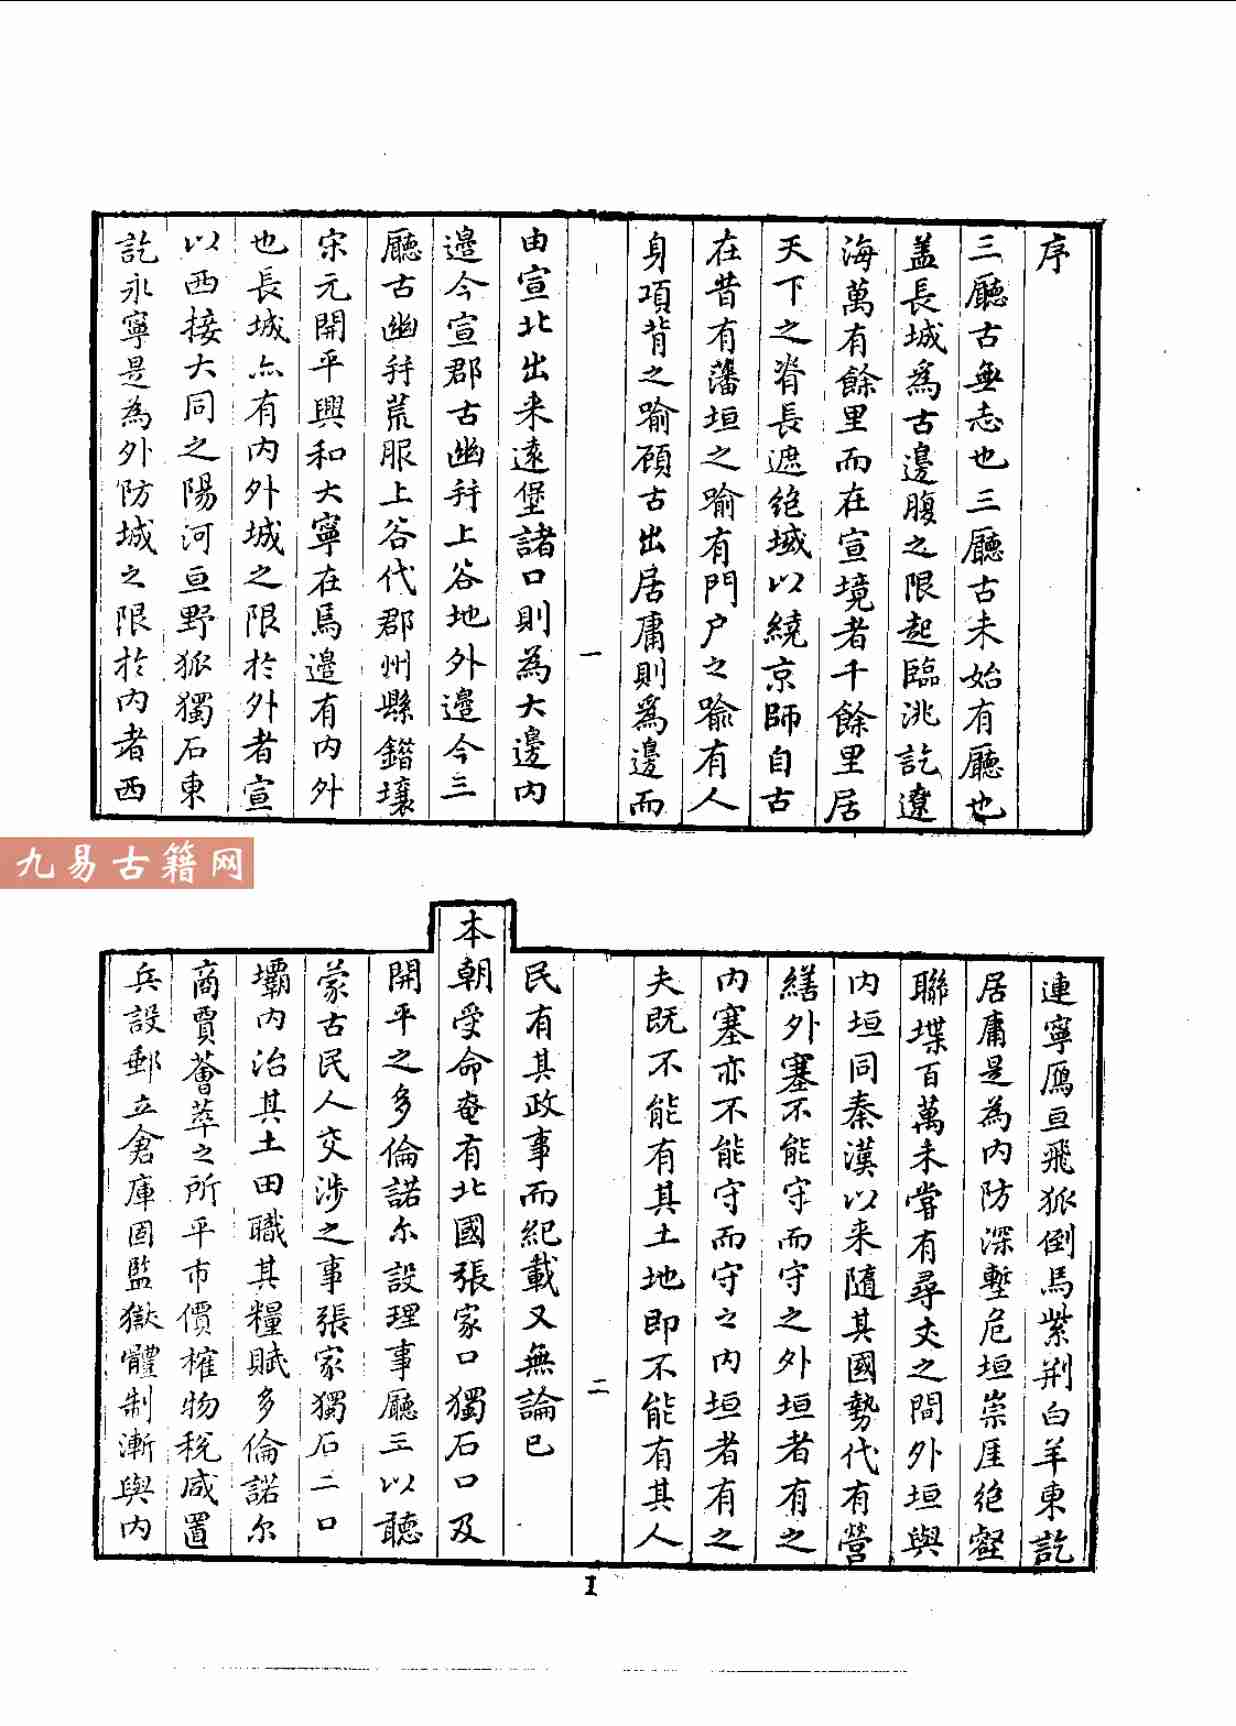 序
三廳古無志也三廳古未始有廳也
盖長城爲古邊腹之限起臨洮訖遼
海萬有餘里而在宣境者千餘里居
天下之脊長遮絶域以繞京師自古
在昔有藩垣之喻有門户之喻有人
身項背之喻顧古出居庸則爲邊而
一
由宣北出来遠堡諸口則為大邊内
邊今宣郡古幽幷上谷地外邊今三
廳古幽幷荒服上谷代郡州縣鎺壤
宋元開平興和大寧在焉邉有内外
也長城亦有内外城之限於外者宣
以西接大同之陽河亘野狐獨石東
訖永寧是為外防城之限於内者西
九易古籍网
連寧鴈亘飛狐倒馬紫荆白羊東訖
居庸是為内防深塹危垣崇厓絶壑
聯堞百萬未嘗有尋丈之間外垣與
内垣同秦漢以来隨其國勢代有營
繕外塞不能守而守之外垣者有之
内塞亦不能守而守之内垣者有之
夫既不能有其土地即不能有其人
二
民有其政事而紀載又無論已
本朝受命奄有北國張家口獨石口及
開平之多倫諾尔設理事廳三以聽
蒙古民人交涉之事張家獨石二口
壩内治其土田職其糧賦多倫諾尔
商賈薈萃之所平市價榷物税咸置
兵設郵立倉庫固監獄體制漸與内
1